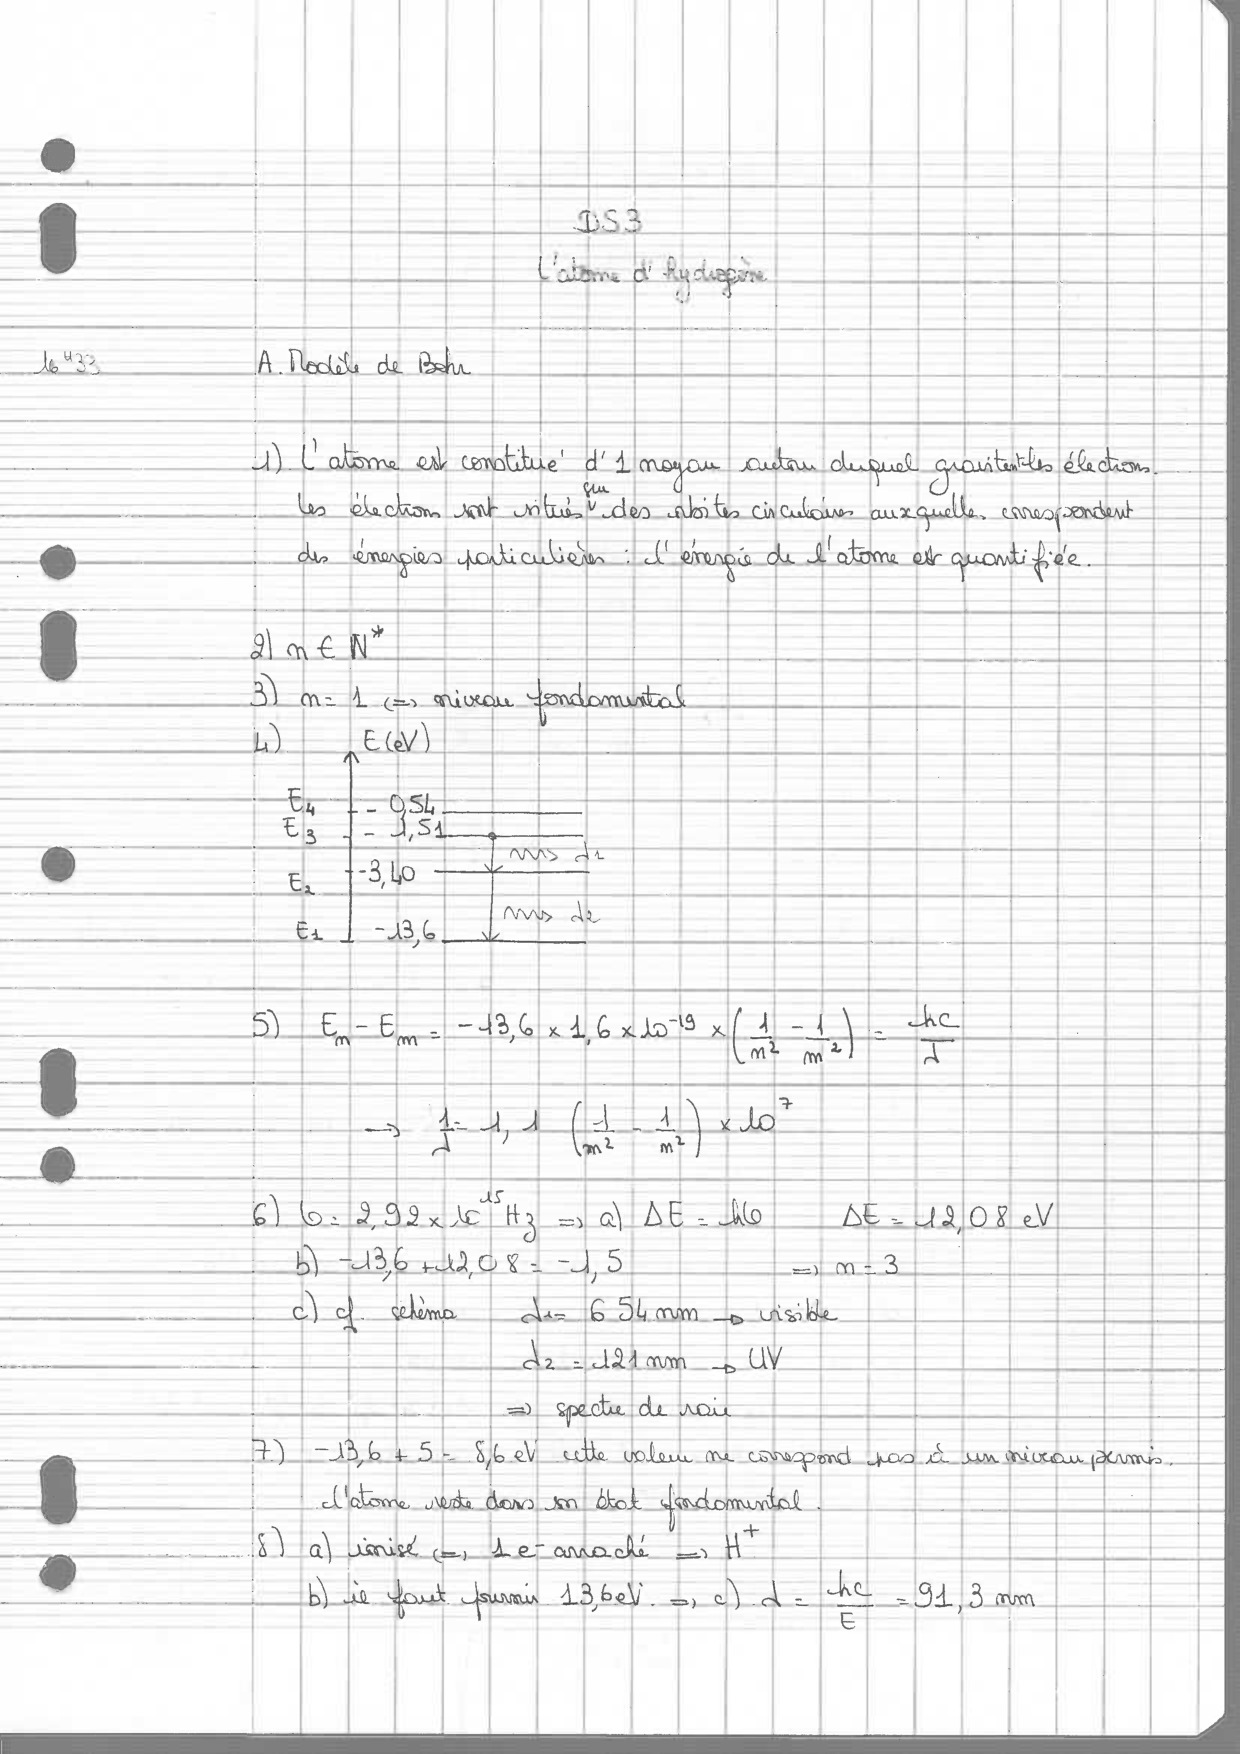 DS3
L'atome d'hydrogène
16H33
A. Modèle de Bohr
1) L'atome est constitué d'1 noyau autour duquel gravitent les électrons.
sur
Les électrons sont situés des orbites circulaires auxquelles correspondent
des énergies particulières : l'énergie de l'atome est quantifiée.
2) n ∈ N*
3) n = 1 <=> niveau fondamental
4) E(eV)
E4 - 0,54
E3 - 1,51
λ1
E2 -3,40
λ2
E1 -13,6
5) En - Em = -13,6 × 1,6 × 10^-19 × (1/n² - 1/m²) = hc/λ
→ 1/λ = 1,1 (1/m² - 1/n²) × 10^7
6) ν = 2,92 × 10^15 Hz => a) ΔE = hν ΔE = 12,08 eV
b) -13,6 + 12,08 = -1,5 => n = 3
c) cf. schéma λ1 = 654 nm → visible
λ2 = 121 nm → UV
=> spectre de raie
7) -13,6 + 5 = 8,6 eV cette valeur ne correspond pas à un niveau permis.
L'atome reste dans son état fondamental.
8) a) ionisé <=> 1 e- arraché => H+
b) il faut fournir 13,6 eV. => c) λ = hc/E = 91,3 nm